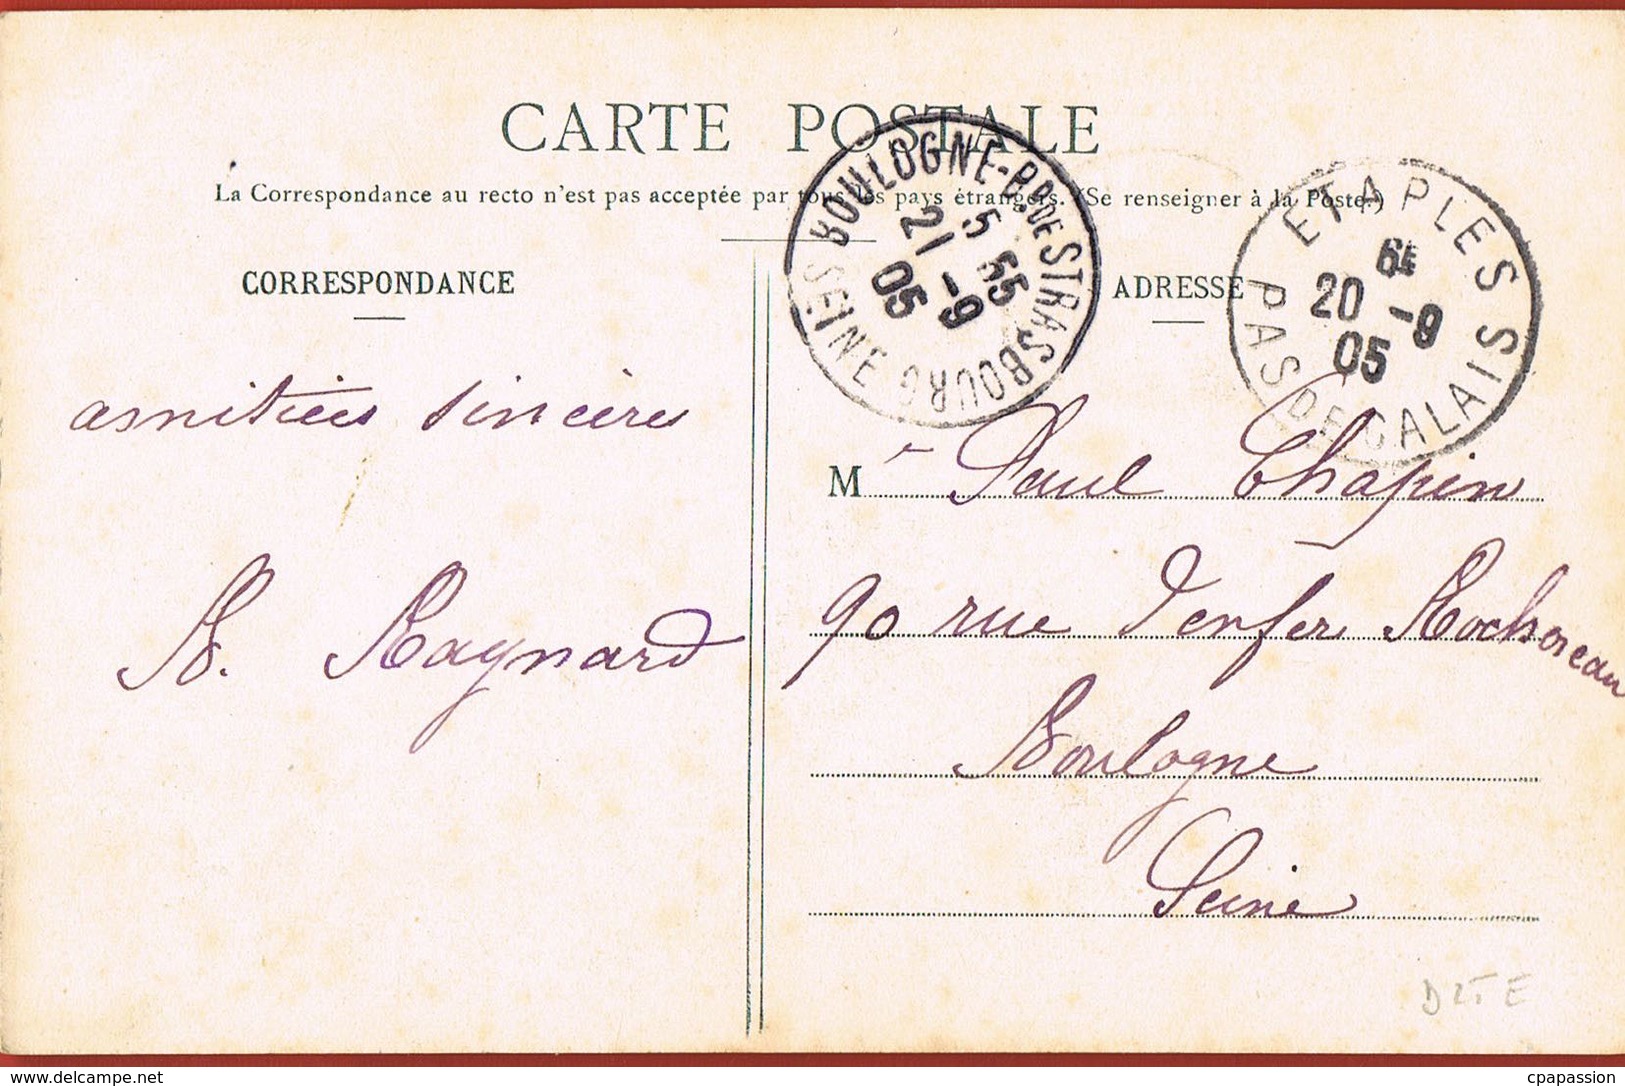 CARTE POSTALE
La Correspondance au recto n'est pas acceptée par tous les pays étrangers. (Se renseigner à la Poste.)
CORRESPONDANCE
ADRESSE
BOULOGNE-S. Bd DE STRASBOURG
5 55
21 -9
05
SEINE
ETAPLES
6E
20 -9
05
PAS DE CALAIS
amitiées sincères
Ragnard
M r Paul Chapin
90 rue Denfer Rochereau
Boulogne
Seine
D25 E
delcampe.net
cpapassion